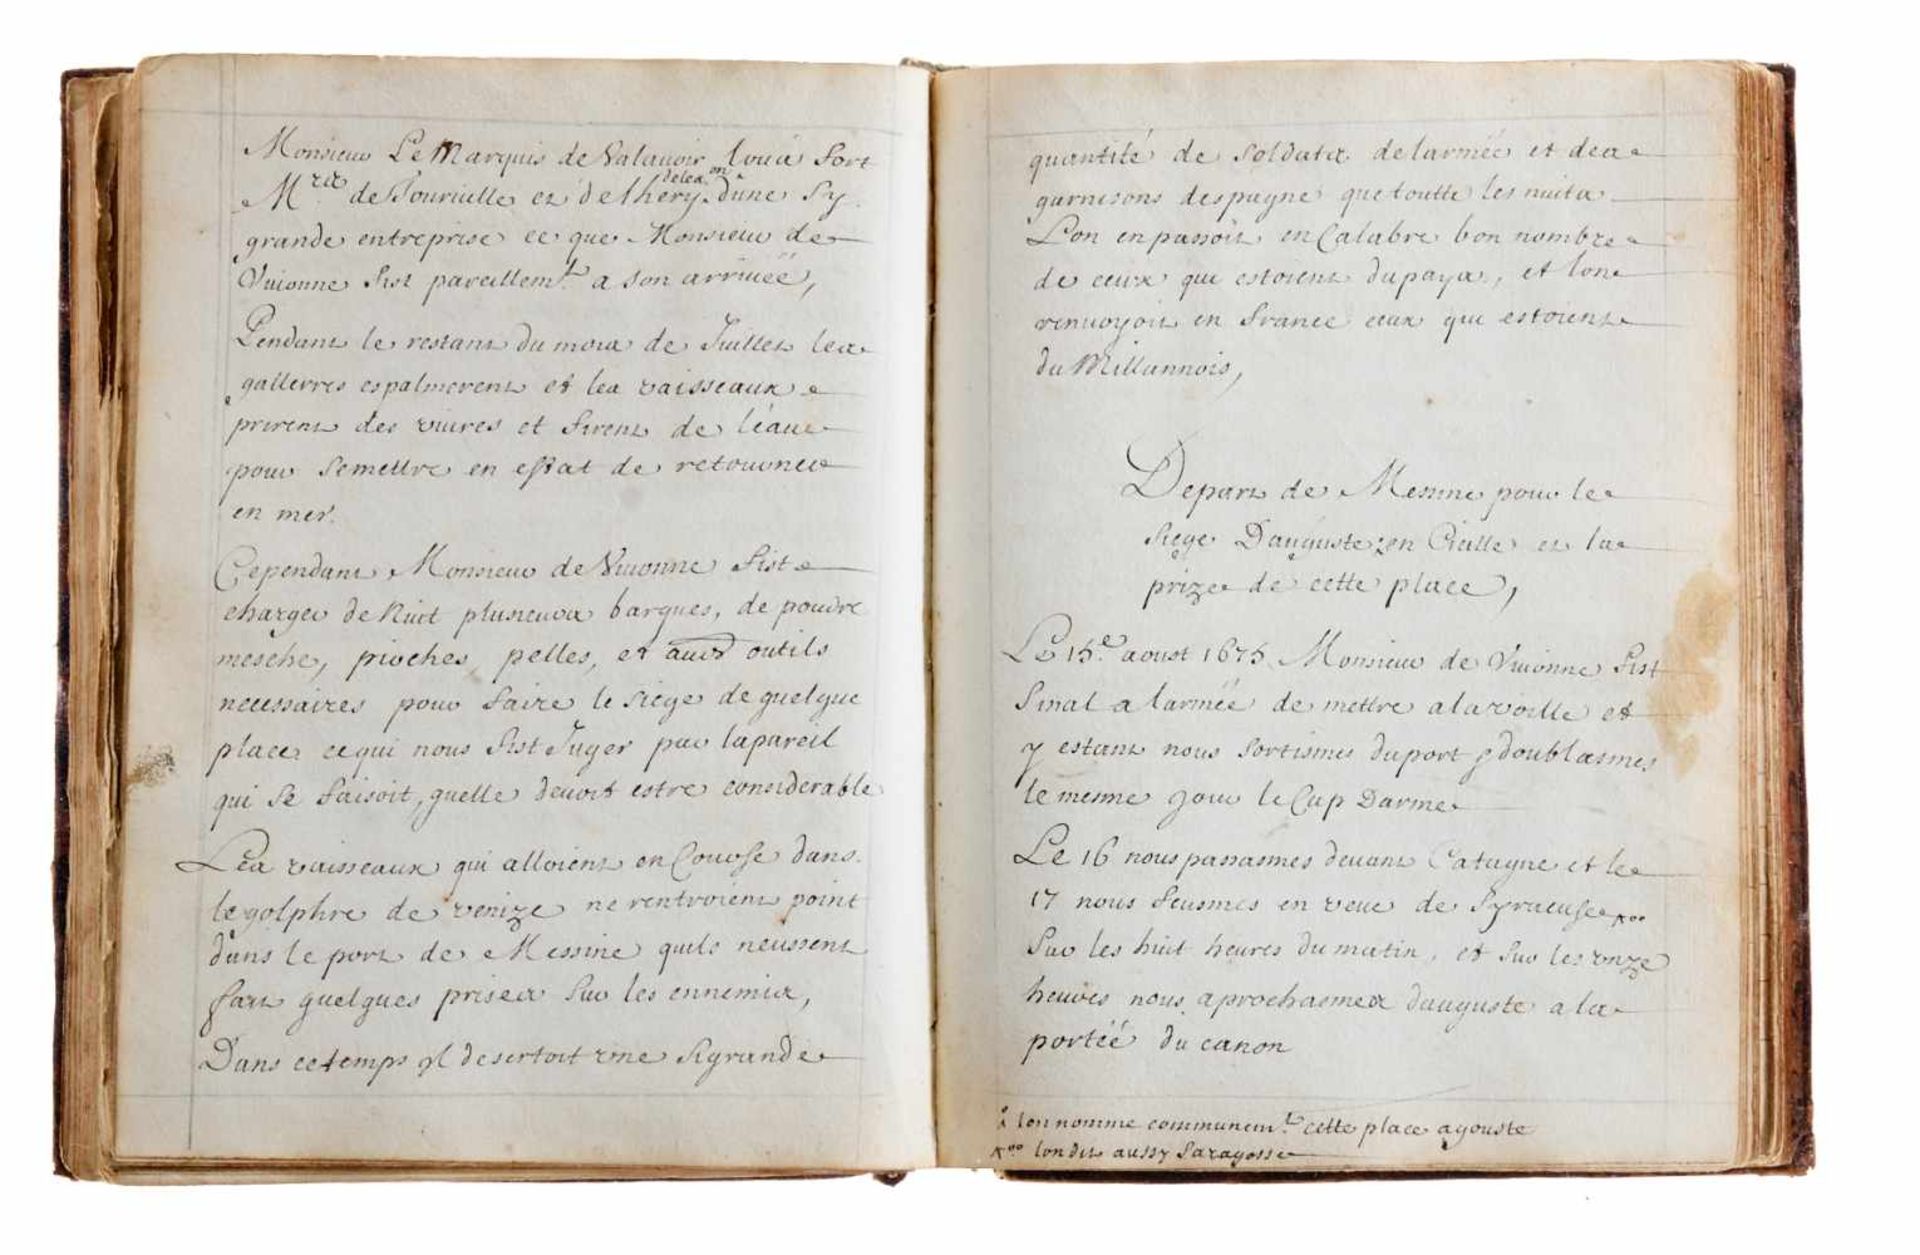 Monsieur Le Marquis de Valauoir loüa fort
M.rs de Touruille et de lhery dûne Sy
grande entreprise ce que Monsieur de
Viuonne fist pareillem.t a son arriuéé,
Pendant le restant du mois de Juillet les
gallerres espalmerent et les vaisseaux
prirent des viures et firent de léaue
pour Semettre en estat de retourner
en mer.
Cependant Monsieur de Viuonne fist
charger de Nuit plusieurs barques, de poudre
mesche, pioches, pelles, et aut.s outils
necessaires pour faire le siege de quelque
place ce qui nous fist Juger par lapareil
qui se faisoit, quelle deuoit estre considerable
Les vaisseaux qui alloient en Course dans
le golphre de venize ne rentroient point
dans le port de Messine quils neussent
fait quelques prises sur les ennemis,
Dans ce temps yl desertoit vne sigrande
quantité de soldats delarméé et des
garnisons despagne que toutte les nuits
Lon en passoit en Calabre bon nombre
de ceux qui estoient du pays, et lon
renuoyoit en france ceux qui estoient
du Millannois,
Depart de Messine pour le
siege Dauguste en Cicille et la
prize de cette place,
Le 15.e aoust 1675 Monsieur de Viuonne fist
sinal a larméé de mettre alavoille et
y estant nous sortismes du port & doublasmes
le mesme jour le Cap Darme
Le 16 nous passasmes deuant Catagne et le
17 nous feusmes en veue de Syracuse
sur les huit heures du matin, et sur les vnze
heures nous aprochasmes dauguste a la
portéé du canon
lon nomme communem.t cette place agouste
lon dit aussy Saragosse